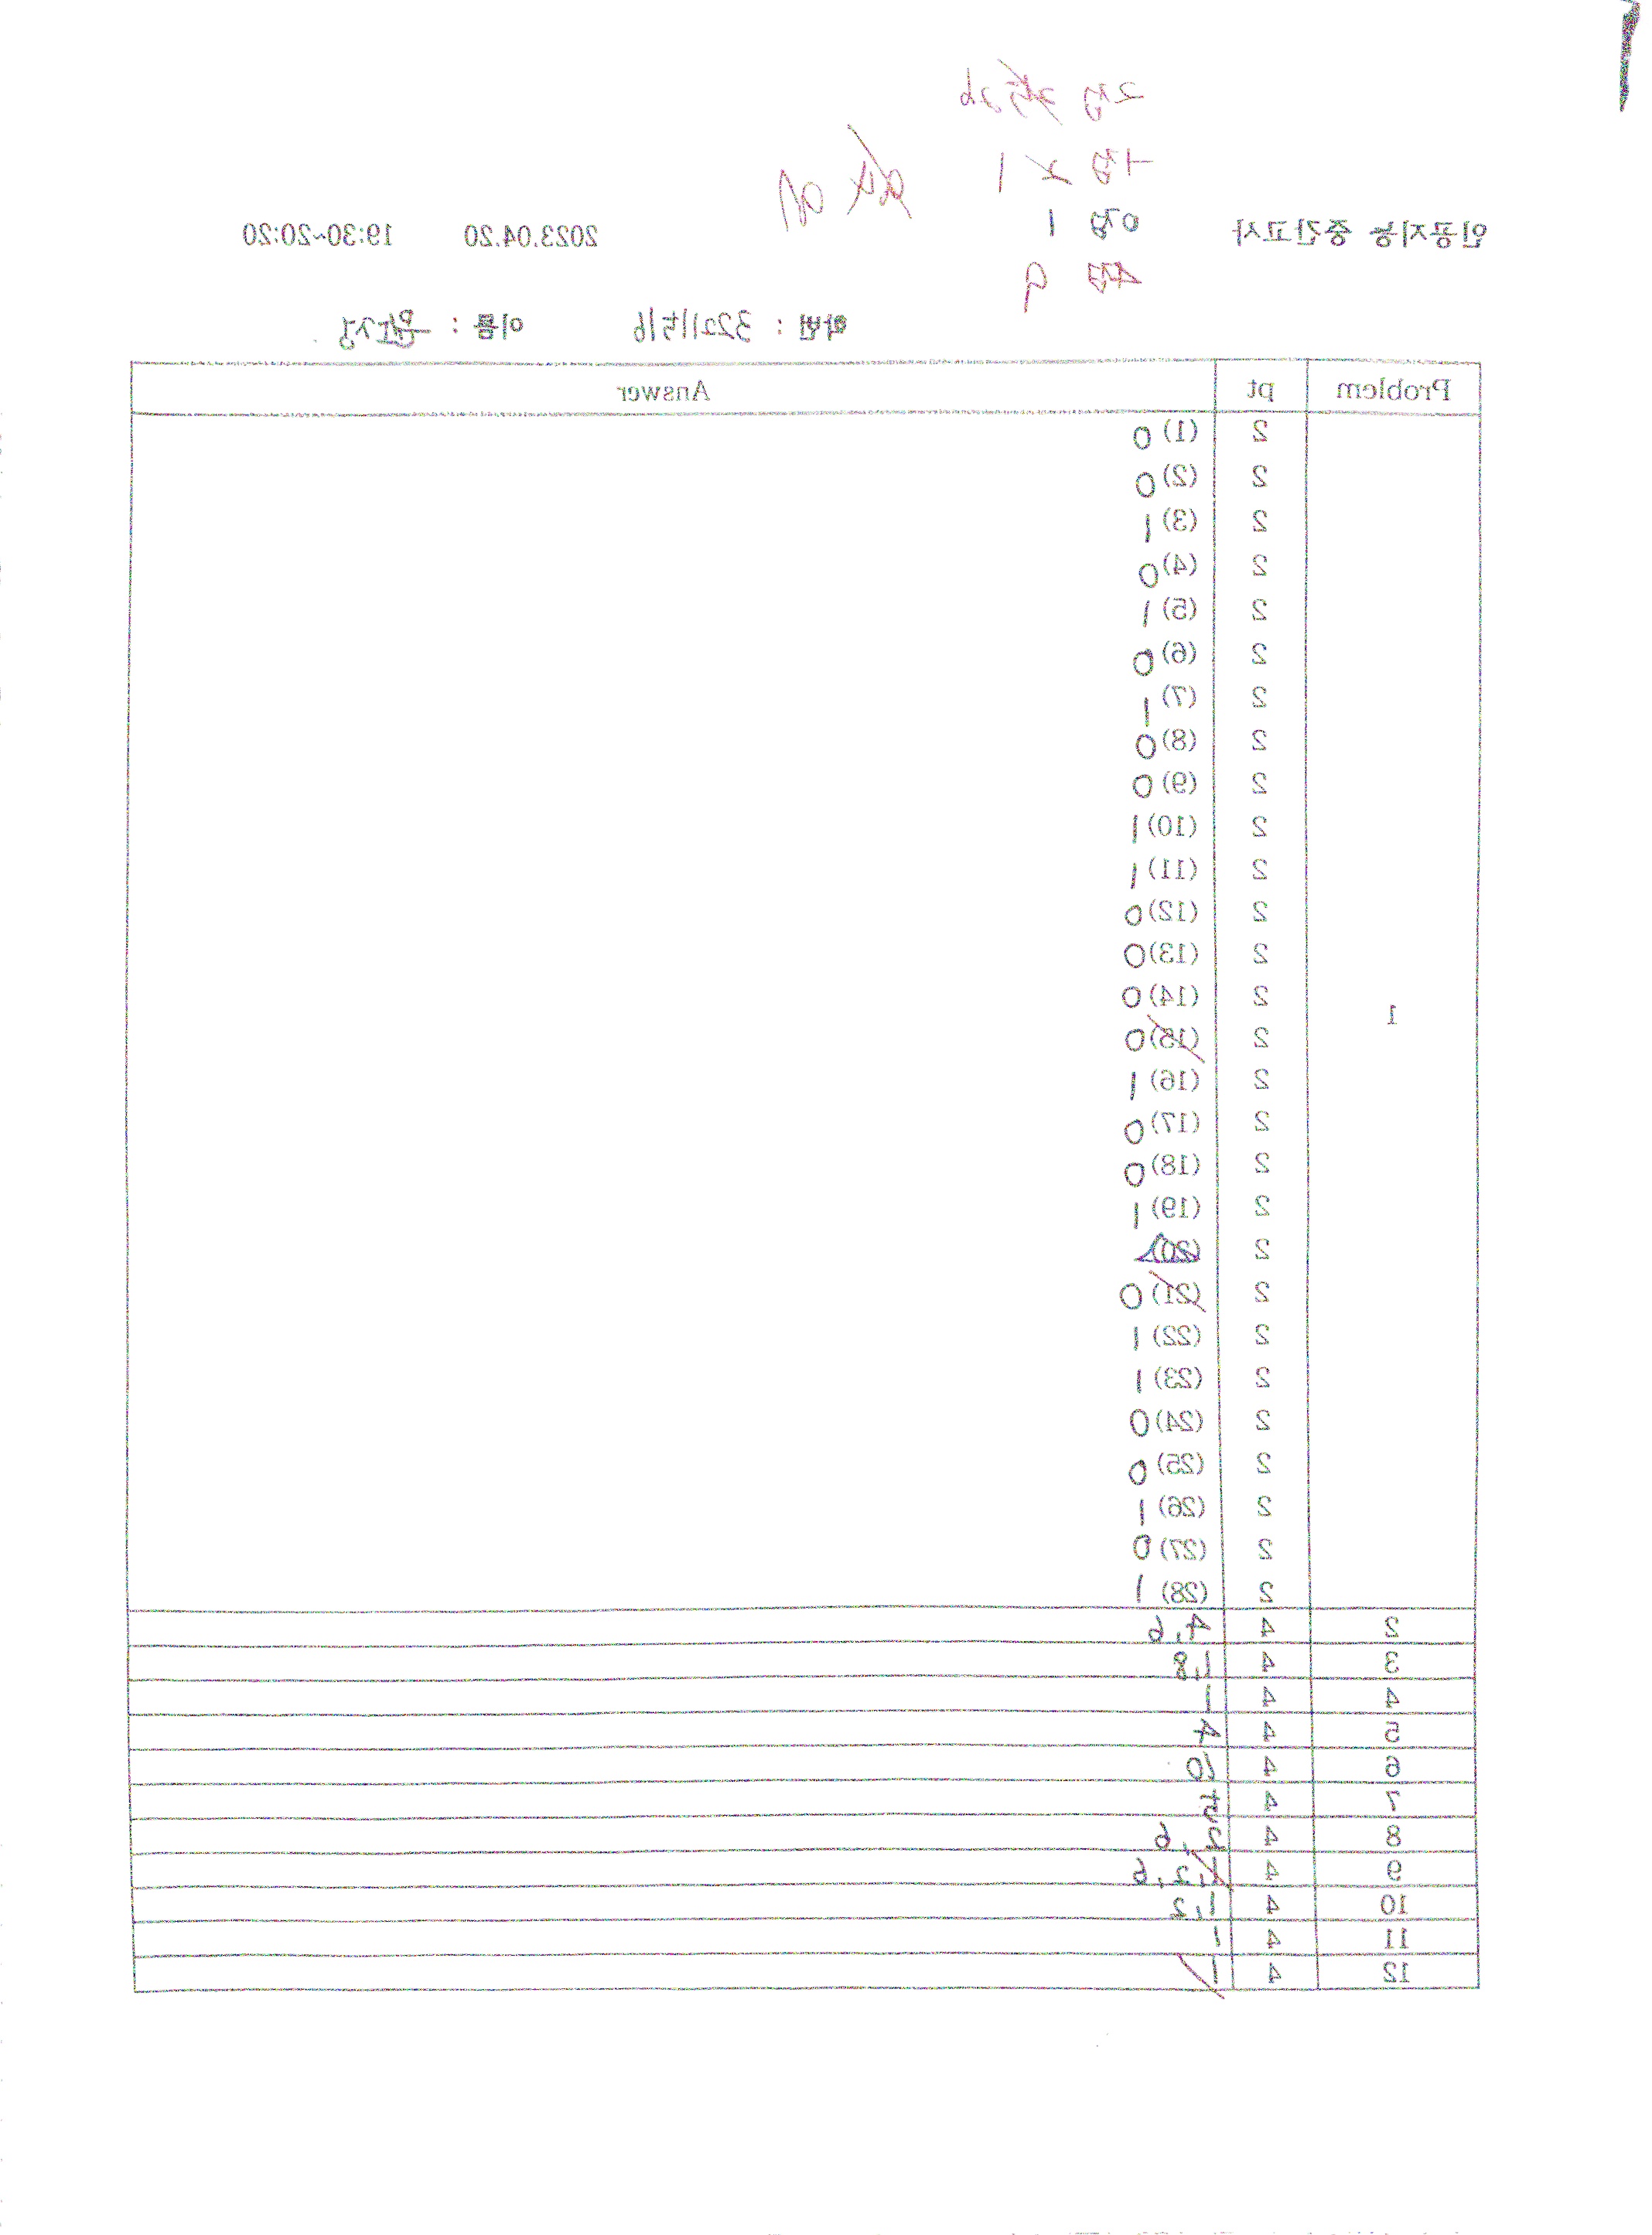 2점 26
-1점 x 1
0점 1
4점 9
90
인공지능 중간고사 2023.04.20 19:30~20:20
학번 : 32211516 이름 :
Problem pt Answer
1
2 (1) 0
2 (2) 0
2 (3) 1
2 (4) 0
2 (5) 1
2 (6) 0
2 (7) 1
2 (8) 0
2 (9) 0
2 (10) 1
2 (11) 1
2 (12) 0
2 (13) 0
2 (14) 0
2 (15) 0
2 (16) 1
2 (17) 0
2 (18) 0
2 (19) 1
2 (20)
2 (21) 0
2 (22) 1
2 (23) 1
2 (24) 0
2 (25) 0
2 (26) 1
2 (27) 0
2 (28) 1
2 4 4, 6
3 4 1,8
4 4 1
5 4 4
6 4 10
7 4 5
8 4 2, 6
9 4 1,2,6
10 4 1,2
11 4 1
12 4 1